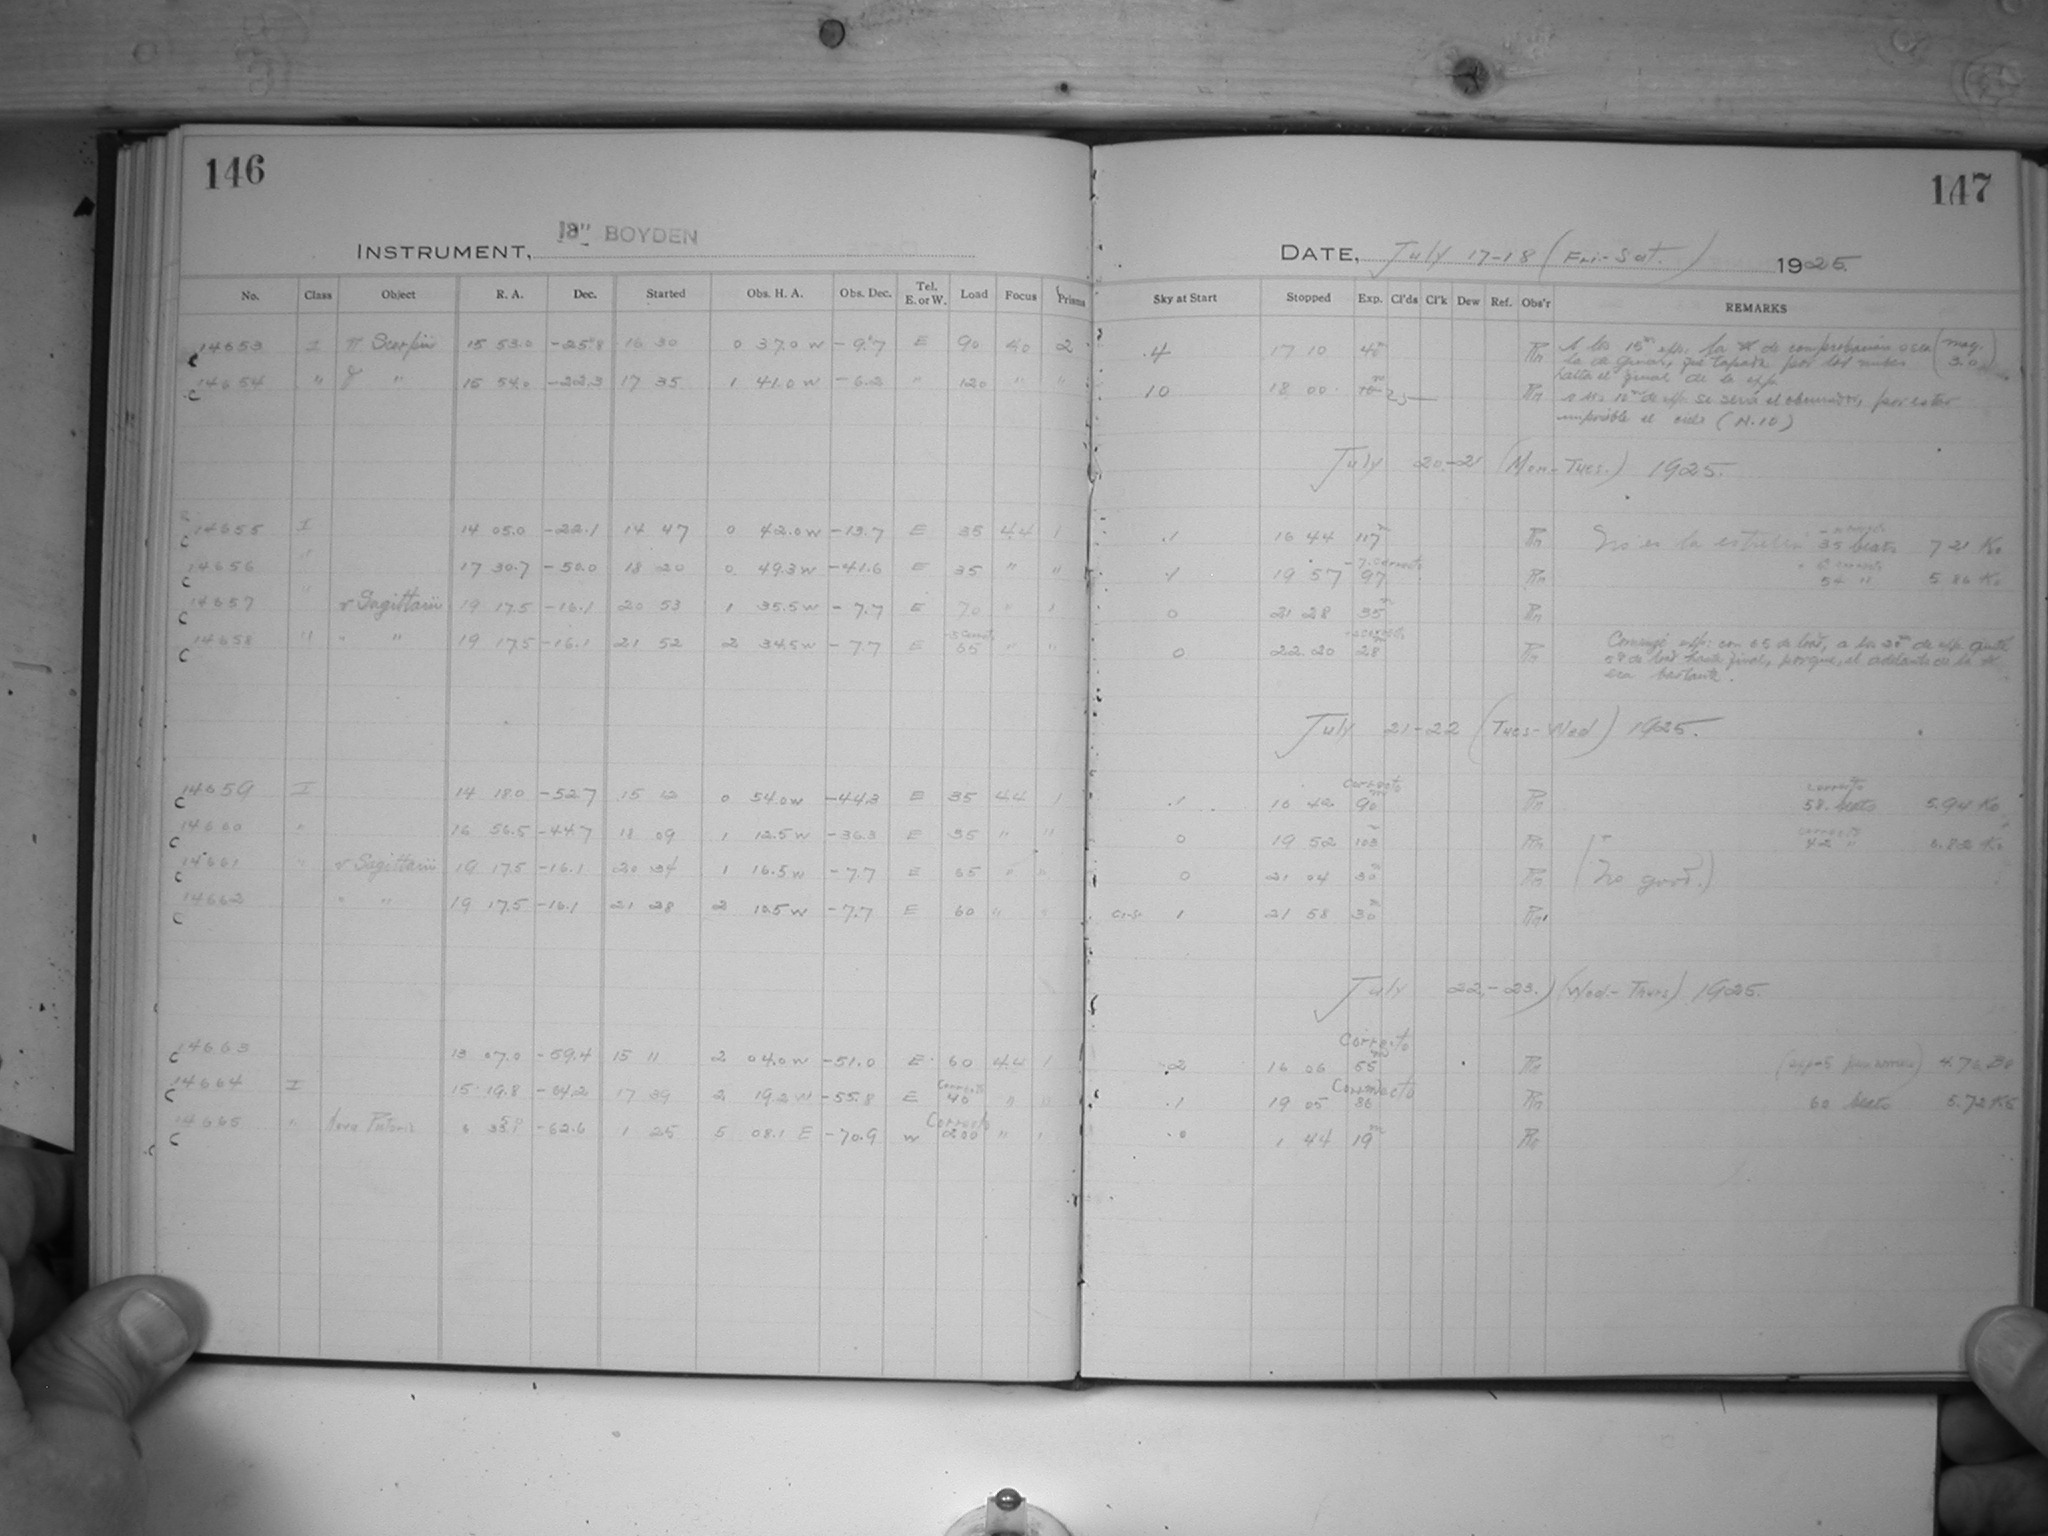 146
INSTRUMENT, 13" BOYDEN
No. Class Object R. A. Dec. Started Obs. H. A. Obs. Dec. Tel. E. or W. Load Focus Prisms
14653 I π Scorpii 15 53.0 -25.8 16 30 0 37.0 W -9.7 E 90 40 2
14654 " " 15 54.0 -22.3 17 35 1 41.0 W -6.2 " 120 " "
14655 I 14 05.0 -22.1 14 47 0 42.0 W -13.7 E 35 44 1
14656 " 17 30.7 -50.0 18 20 0 49.3 W -41.6 E 35 " "
14657 " Sagittarii 19 17.5 -16.1 20 53 1 35.5 W -7.7 E 70 " 1
14658 " " " 19 17.5 -16.1 21 52 2 34.5 W -7.7 E 65 " "
14659 I 14 18.0 -52.7 15 12 0 54.0 W -44.3 E 35 44 1
14660 " 16 56.5 -44.7 18 09 1 12.5 W -36.3 E 35 " "
14661 " Sagittarii 19 17.5 -16.1 20 34 1 16.5 W -7.7 E 65 " "
14662 " " 19 17.5 -16.1 21 28 2 10.5 W -7.7 E 60 " "
14663 13 07.0 -59.4 15 11 2 04.0 W -51.0 E 60 44 1
14664 I 15 19.8 -64.2 17 39 2 19.2 W -55.8 E Correcto 40 " "
14665 " Nova Pictoris 6 35.1 -62.6 1 25 5 08.1 E -70.9 W Correcto 200 " "
147
DATE, July 17-18 (Fri.-Sat.) 1925.
Sky at Start Stopped Exp. Cl'ds Cl'k Dew Ref. Obs'r REMARKS
.4 17 10 40 Rn A los 15m exp. la * de comprobación o sea (mag. 3.0)
la de guiar, fué tapada por las nubes
hasta el final de la exp.
10 18 00 25 Rn
imposible el cielo (N. 10)
July 20-21 (Mon-Tues.) 1925.
.1 16 44 117m Rn No es la estrella 35 beats 7.21 Ko
19 57 97 Rn 54 " 5.86 K
0 21 28 35m Rn
0 22 20 28 Rn Comencé exp: con 65 de load, a los 20m de exp.
58 de load hasta final, porque, el adelanto de la *
era bastante.
July 21-22 (Tues-Wed) 1925.
.1 16 42 Correcto 90m Rn correcto 58 beats 5.94 Ko
0 19 52 103m Rn correcto 42 "
0 21 04 30m Rn (No good.)
1 21 58 30m Rn
July 22-23.) (Wed.-Thurs) 1925.
.2 16 06 Correcto 55m Rn
.1 19 05 Correcto 86 Rn 60 beats 5.72 K5
.0 1 44 19m Rn